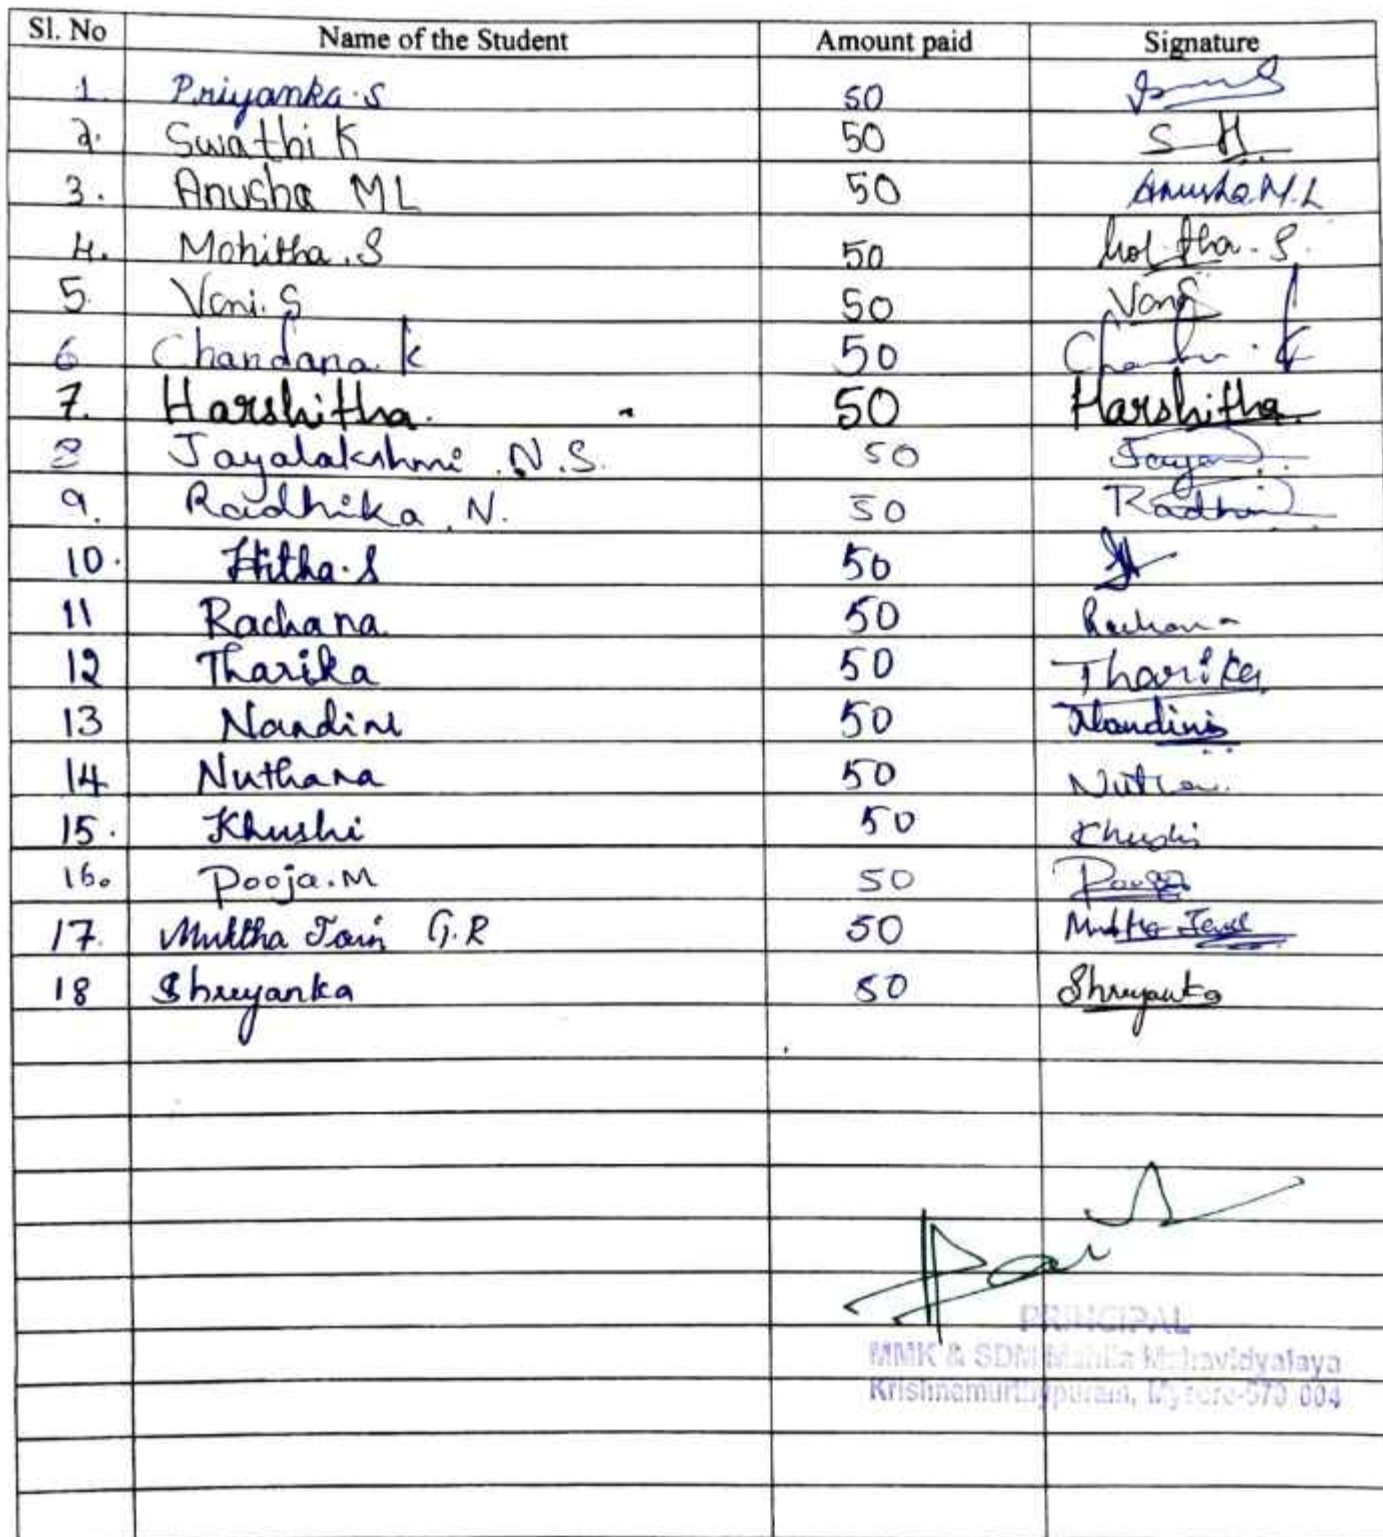 Sl. No Name of the Student Amount paid Signature
1. Priyanka.S 50
2. Swathi K 50 S H.
3. Anusha ML 50 Anusha M.L
4. Mohitha.S 50
5. Vani.S 50 Vani S
6 Chandana.K 50
7. Harshitha. 50 Harshitha
8 Jayalakshmi.N.S. 50 Jayan
9. Radhika.N. 50 Radhi
10. Hitha.S 50
11 Rachana. 50 Rachana
12 Tharika 50 Tharika
13 Nandini 50 Nandini
14 Nuthana 50
15. Khushi 50 Khushi
16. Pooja.M 50 Pooja
17. Muktha Jain G.R 50 Muktha Jain
18 Shreyanka 50 Shreyanka
PRINCIPAL
MMK & SDM Mahila Mahavidyalaya
Krishnamurthypuram, Mysore-570 004